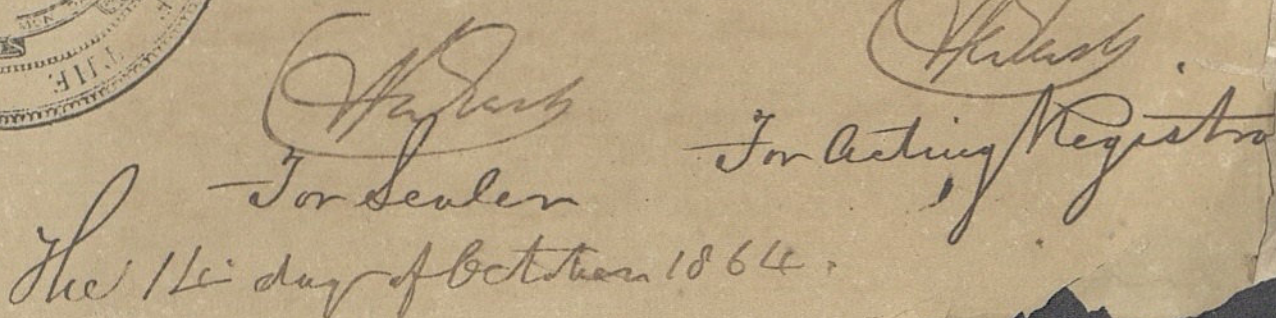 THE
For Sealer
For Acting Registra
The 14 day of October 1864.